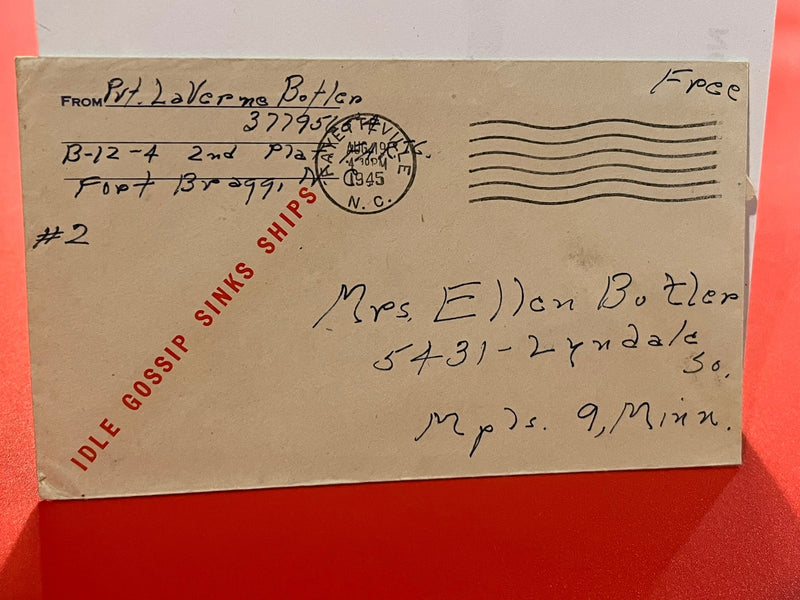 FROM Pvt. LaVerne Botler
B-12-4 2nd Plat
Fort Bragg, N
Free
FAYETTEVILLE
AUG 19
4 30 PM
1945
N. C.
#2
IDLE GOSSIP SINKS SHIPS
Mrs. Ellen Botler
5431-Lyndale
So.
Mpls. 9, Minn.